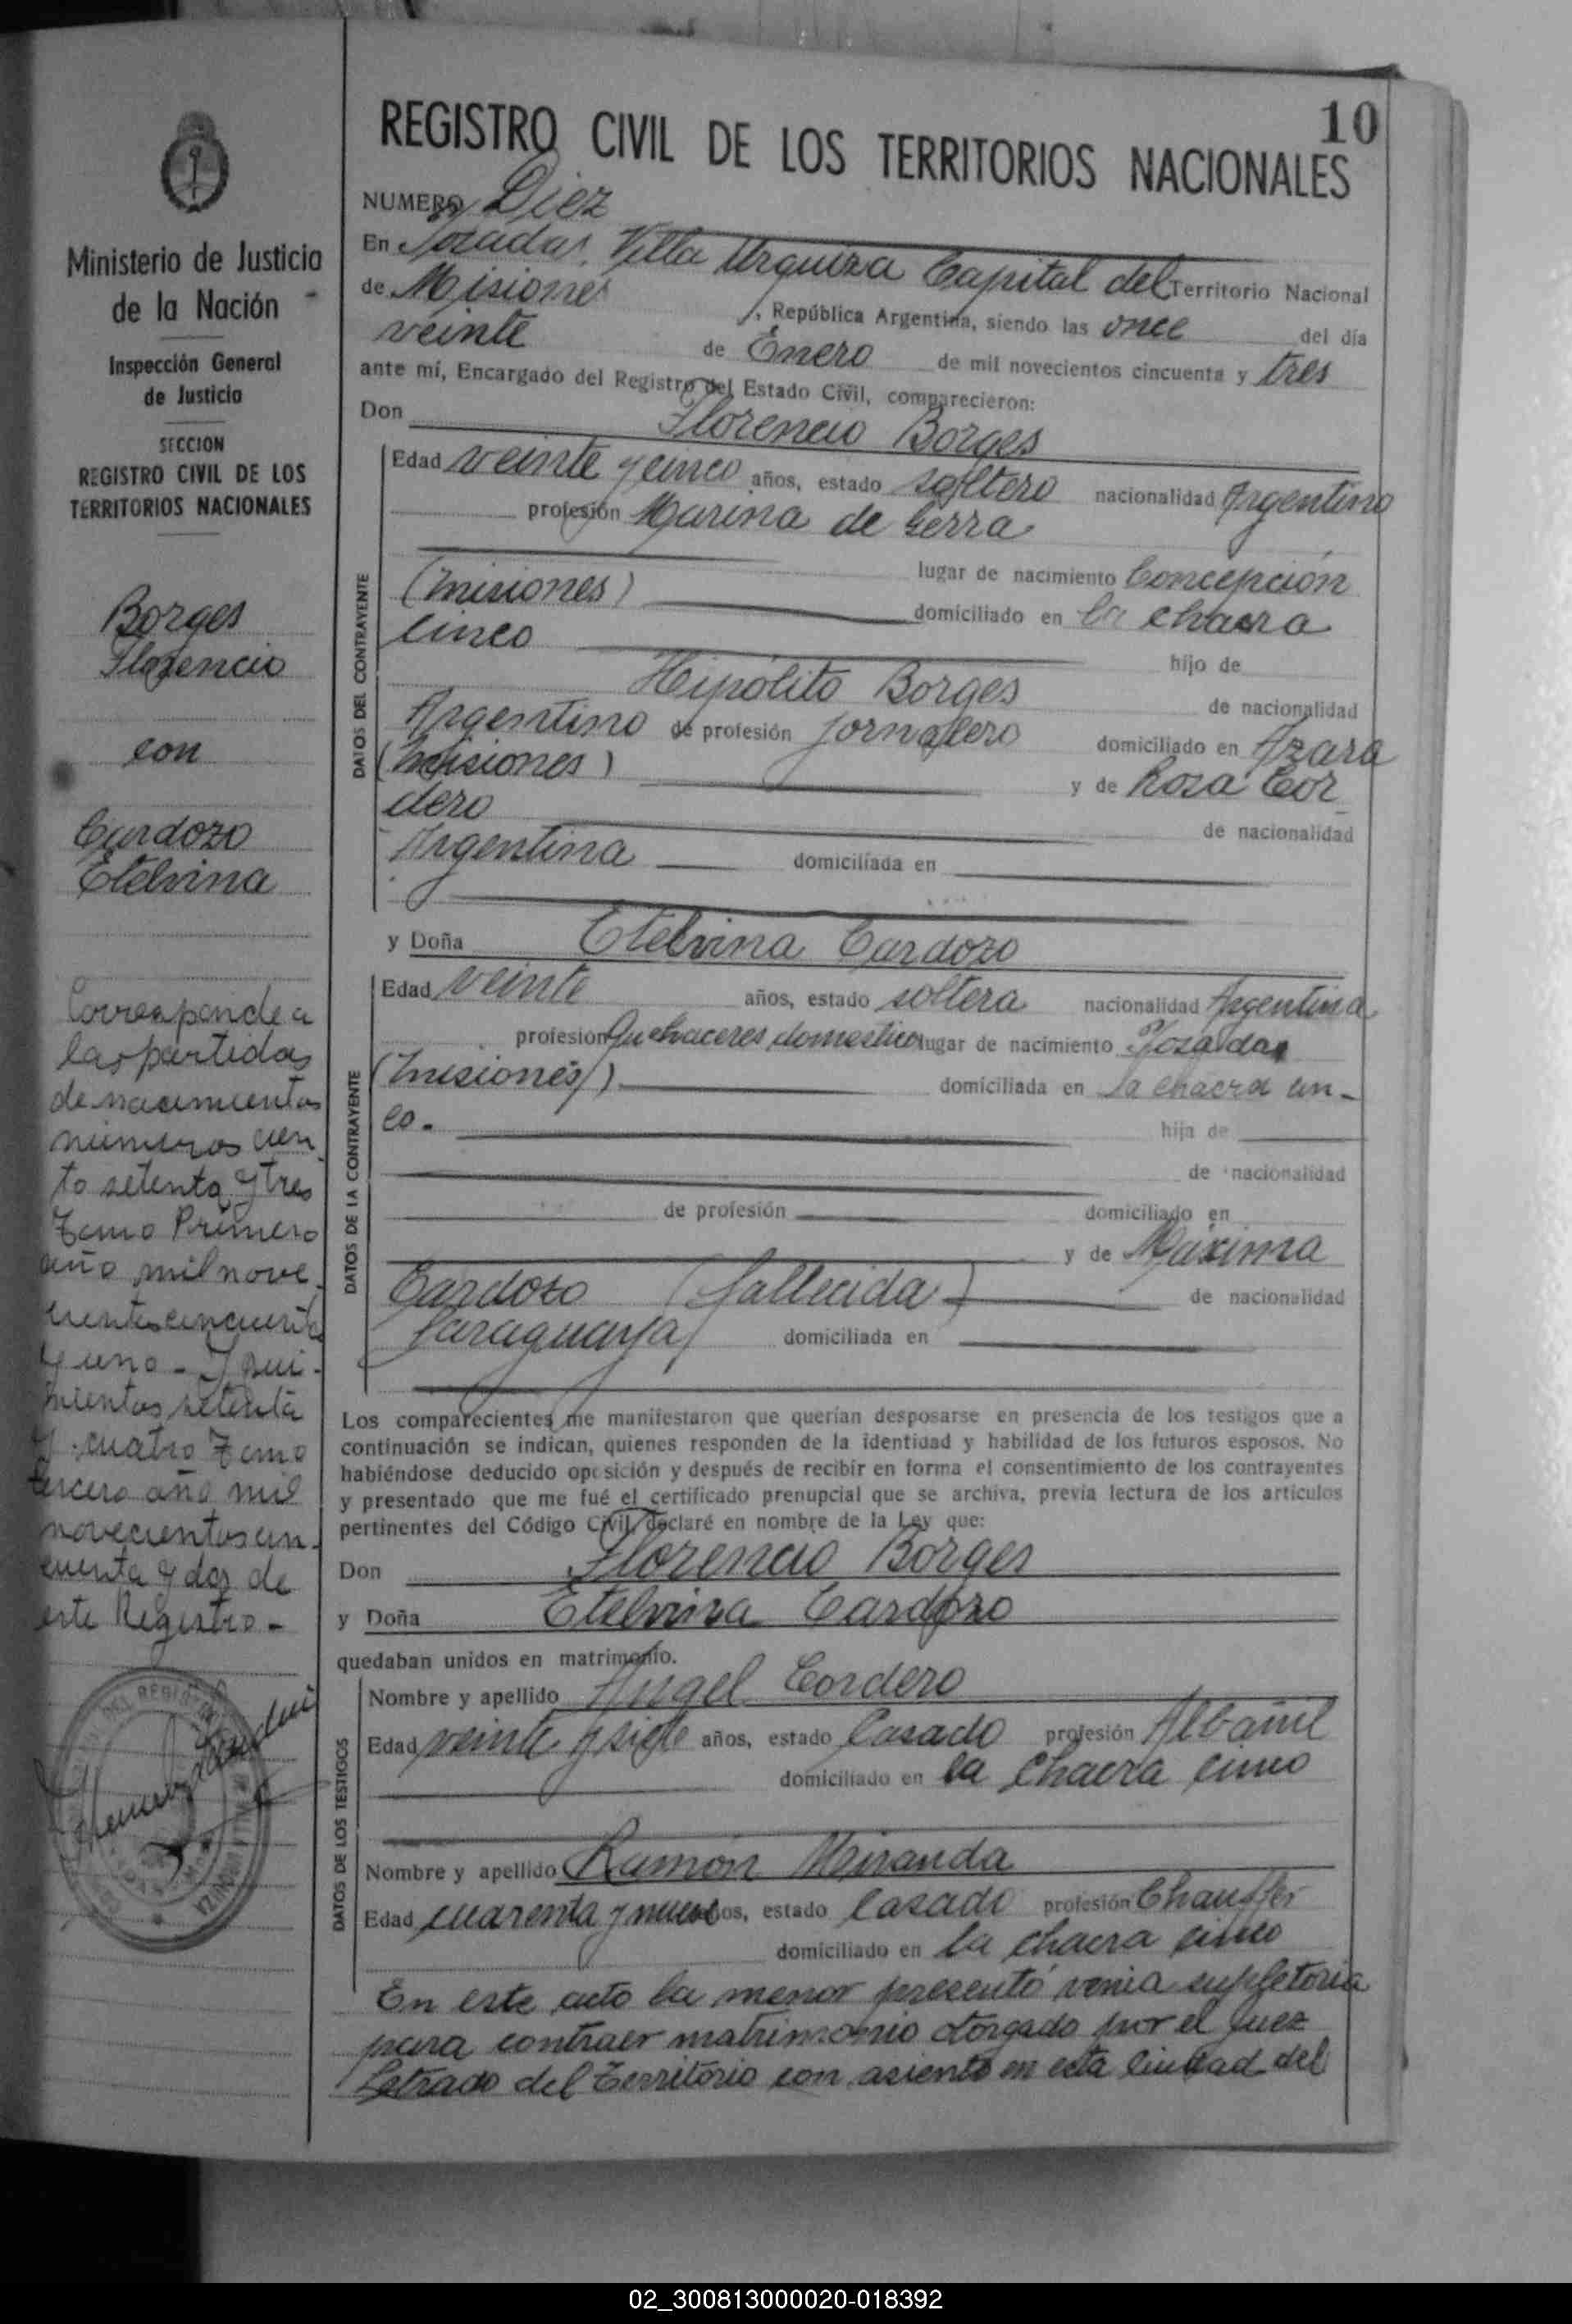 10
REGISTRO CIVIL DE LOS TERRITORIOS NACIONALES
Ministerio de Justicia
de la Nación
Inspección General
de Justicia
SECCION
REGISTRO CIVIL DE LOS
TERRITORIOS NACIONALES
Borges
Florencio
con
Cardozo
Etelvina
Corresponde a
las partidas
de nacimientos
números cien
to setenta y tres
Tomo Primero
año mil nove
cientos cincuenta
y uno - y qui-
nientos setenta
y cuatro Tomo
tercero año mil
novecientos cin-
cuenta y dos de
este Registro -
NUMERO Diez
En Posadas, Villa Urquiza Capital del Territorio Nacional
de Misiones, República Argentina, siendo las once del día
veinte de Enero de mil novecientos cincuenta y tres
ante mí, Encargado del Registro del Estado Civil, comparecieron:
Don Florencio Borges
DATOS DEL CONTRAYENTE
Edad veinte y cinco años, estado soltero nacionalidad Argentino
profesión Marina de Gerra
lugar de nacimiento Concepción
(Misiones) domiciliado en la chacra
cinco hijo de
Hipólito Borges de nacionalidad
Argentino de profesión jornalero domiciliado en Azara
(Misiones) y de Rosa Cor
dero de nacionalidad
Argentina domiciliada en
y Doña Etelvina Cardozo
DATOS DE LA CONTRAYENTE
Edad veinte años, estado soltera nacionalidad Argentina
profesion Quehaceres domestico lugar de nacimiento Posadas
(Misiones) domiciliada en la chacra cin-
co. hija de
de nacionalidad
de profesión domiciliado en
y de Máxima
Cardozo (fallecida) de nacionalidad
Paraguaya domiciliada en
Los comparecientes me manifestaron que querían desposarse en presencia de los testigos que a
continuación se indican, quienes responden de la identidad y habilidad de los futuros esposos. No
habiéndose deducido oposición y después de recibir en forma el consentimiento de los contrayentes
y presentado que me fué el certificado prenupcial que se archiva, previa lectura de los artículos
pertinentes del Código Civil, declaré en nombre de la Ley que:
Don Florencio Borges
y Doña Etelvina Cardozo
quedaban unidos en matrimonio.
DATOS DE LOS TESTIGOS
Nombre y apellido Angel Cordero
Edad veinte y siete años, estado Casado profesión Albañil
domiciliado en la Chacra cinco
Nombre y apellido Ramón Miranda
Edad cuarenta y nueve años, estado Casado profesión Chauffer
domiciliado en la chacra cinco
En este acto la menor presentó venia supletoria
para contraer matrimonio otorgado por el Juez
Letrado del Territorio con asiento en esta Ciudad del
02_300813000020-018392